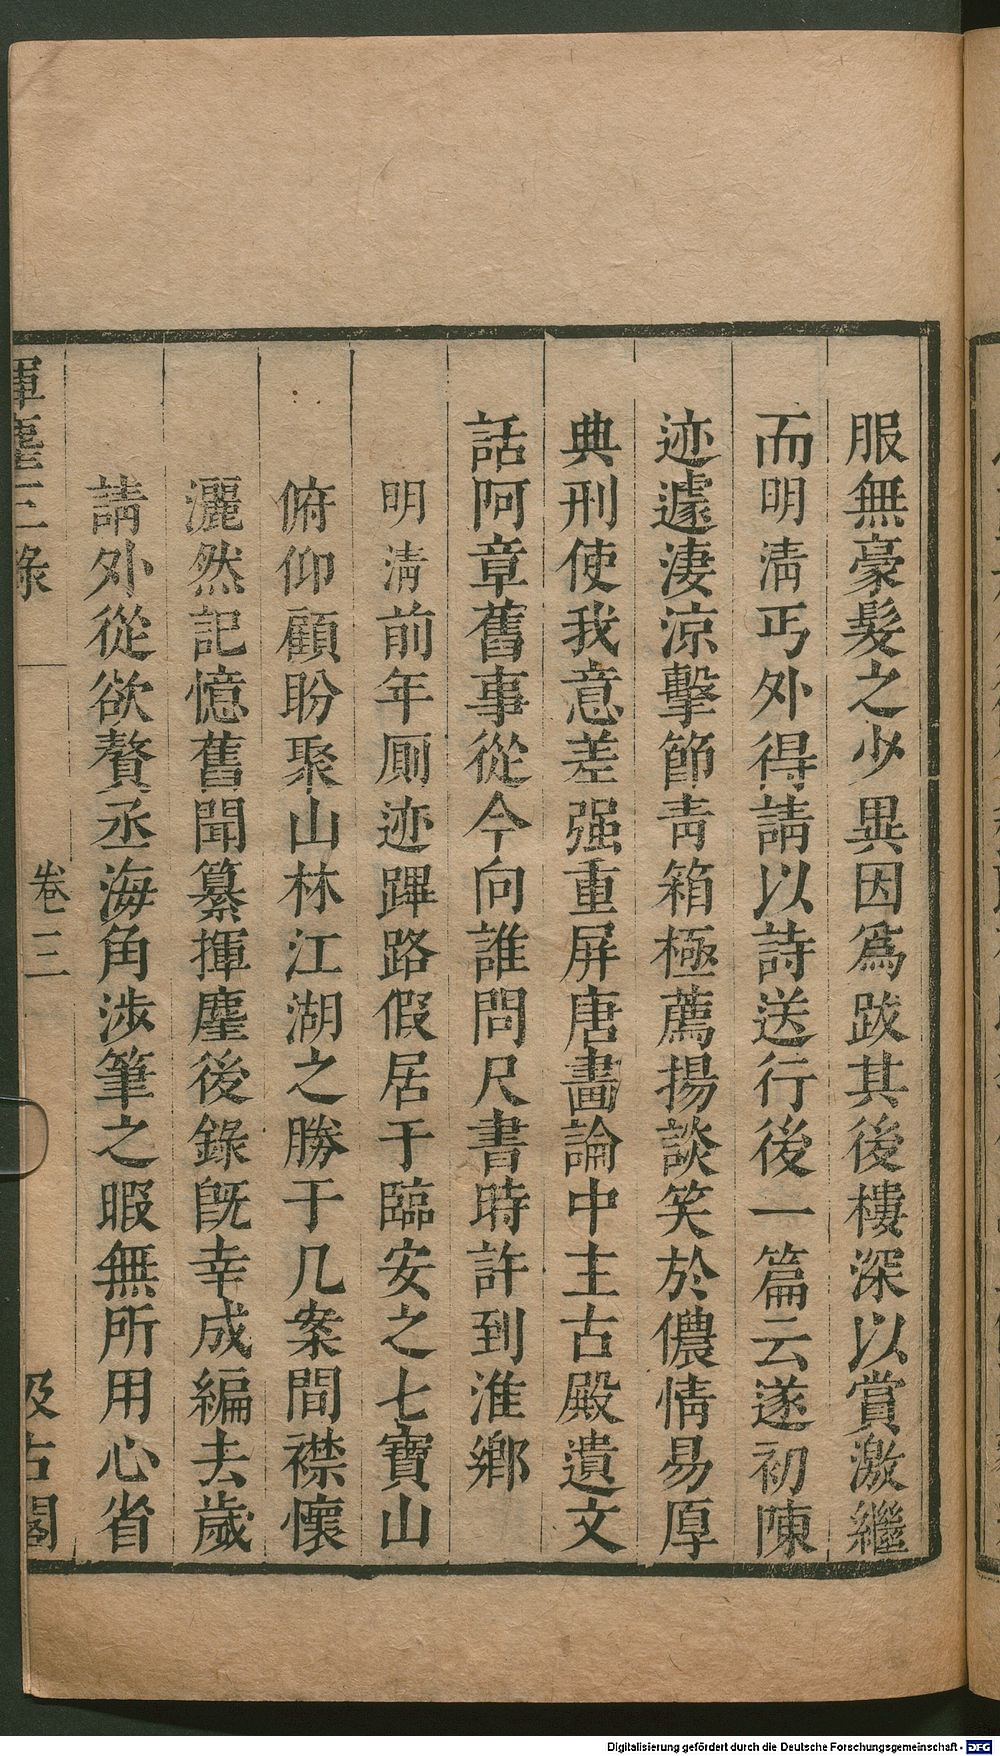 服無豪髮之少異因爲跋其後樓深以賞激繼
而明淸丐外得請以詩送行後一篇云遂初陳
迹遽淒涼擊節靑箱極薦揚談笑於儂情易厚
典刑使我意差强重屏唐畫論中主古殿遺文
話阿章舊事從今向誰問尺書時許到淮鄉
明淸前年厠迹蹕路假居于臨安之七寶山
俯仰顧盼聚山林江湖之勝于几案間襟懷
灑然記憶舊聞纂揮麈後錄旣幸成編去歲
請外從欲贅丞海角涉筆之暇無所用心省
揮麈三錄 卷三 汲古閣
Digitalisierung gefördert durch die Deutsche Forschungsgemeinschaft - DFG